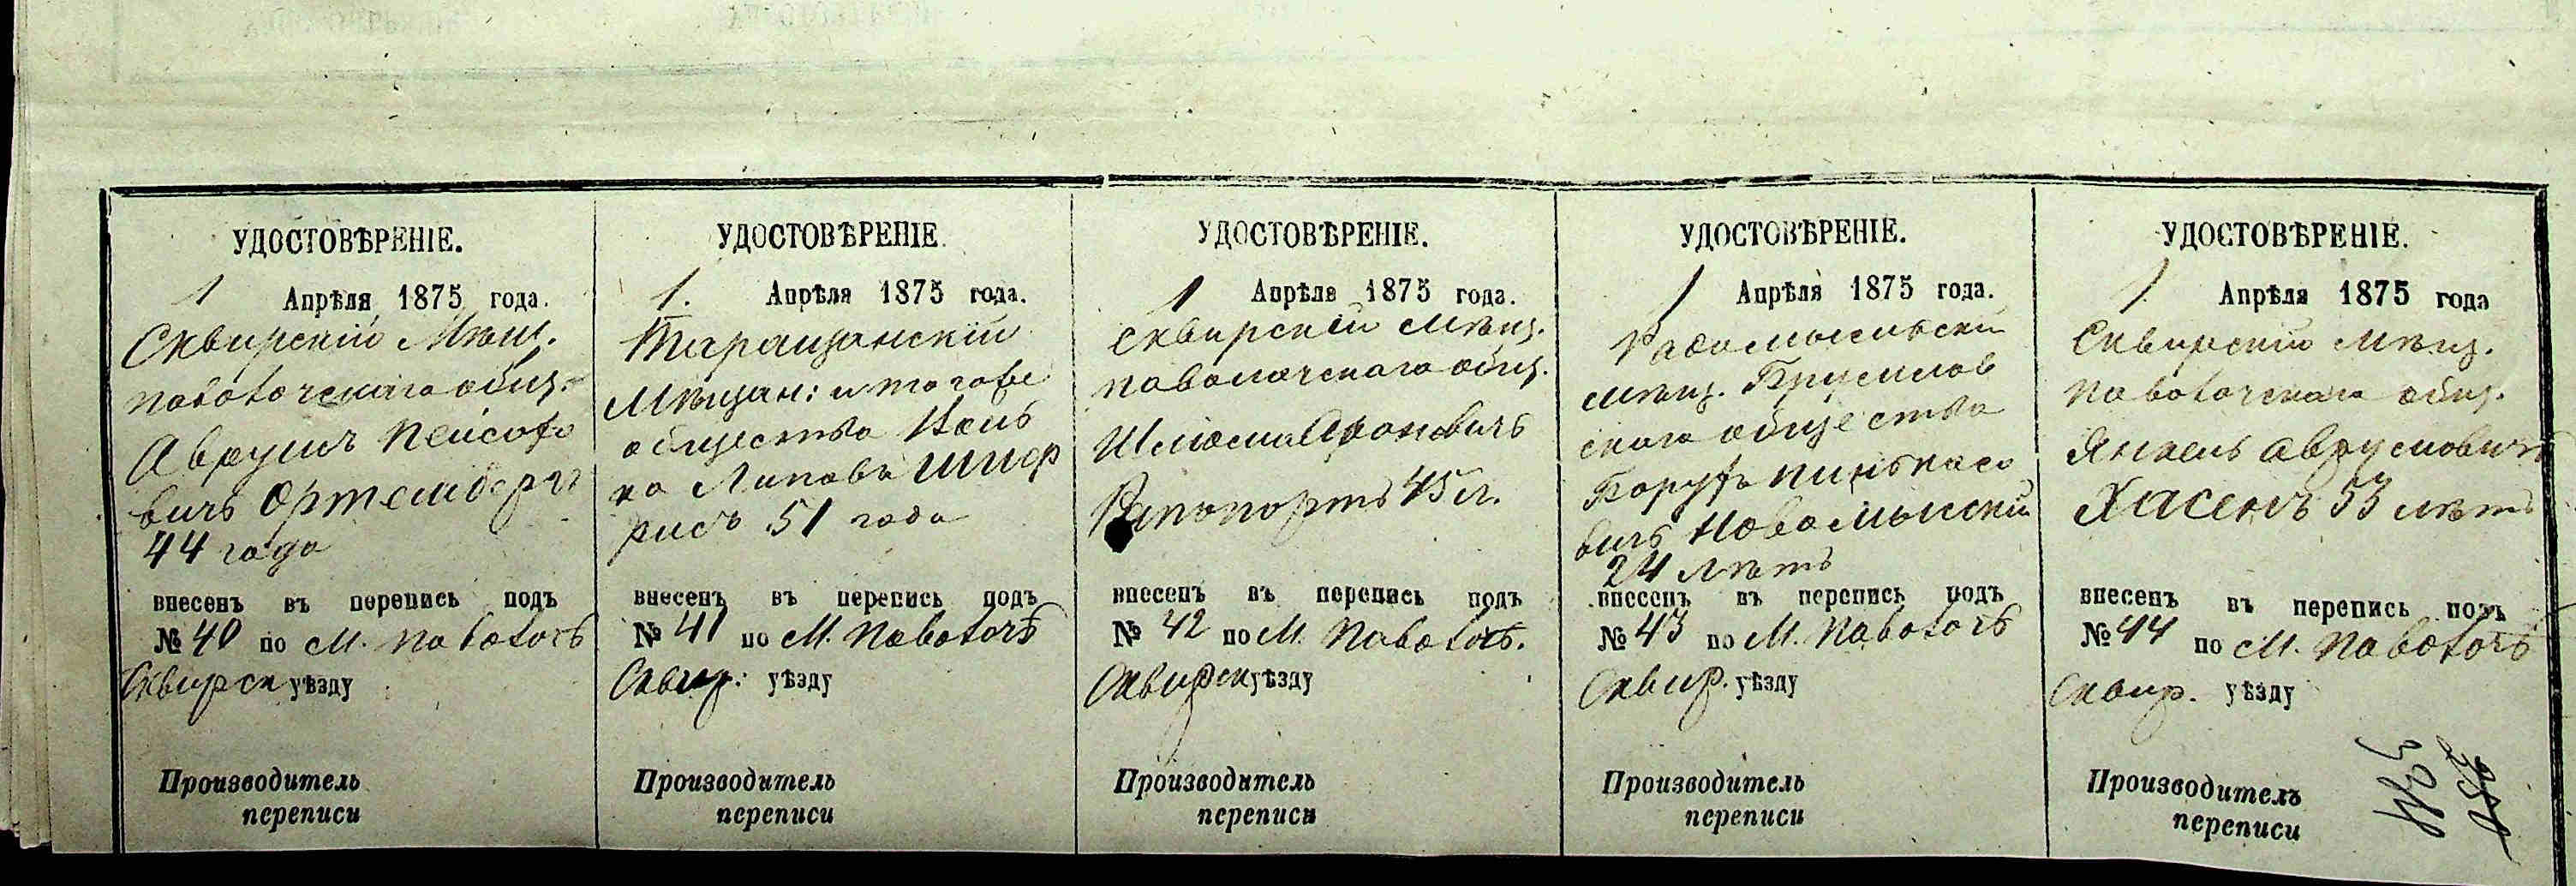 УДОСТОВѢРЕНІЕ.
1 Апрѣля 1875 года.
Сквирскій Мѣщ.
паволочскаго общ.
Аврумъ Пейсахо
вичъ Ортемберг
44 года
внесенъ въ перепись подъ
№ 40 по М. Паволочъ
Сквирск уѣзду
Производитель
переписи
УДОСТОВѢРЕНІЕ
1. Апрѣля 1875 года.
Таращанскій
Мѣщан:
общества
Липовъ
51 года
внесенъ въ перепись подъ
№ 41 по М. Паволочъ
Сквир: уѣзду
Производитель
переписи
УДОСТОВѢРЕНІЕ.
1 Апрѣля 1875 года.
Сквирскій мѣщ.
паволочскаго общ.
Шлиома Ароновичъ
Рапопортъ 45 л.
внесенъ въ перепись подъ
№ 42 по М. Паволочь.
Сквирск уѣзду
Производитель
переписи
УДОСТОВѢРЕНІЕ.
1 Апрѣля 1875 года.
Радомысльскій
мѣщ. Брусилов
скаго общества
Борухъ Пинькасо
вичъ Новомыльскій
24 лѣтъ
внесенъ въ перепись подъ
№ 43 по М. Паволочъ
Сквир. уѣзду
Производитель
переписи
УДОСТОВѢРЕНІЕ.
1 Апрѣля 1875 года
Сквирскій мѣщ.
паволочскаго общ.
Янкель Аврумовичъ
Хасенъ 53 лѣтъ
внесенъ въ перепись подъ
№ 44 по М. Паволочъ
Сквир. уѣзду
Производитель
переписи